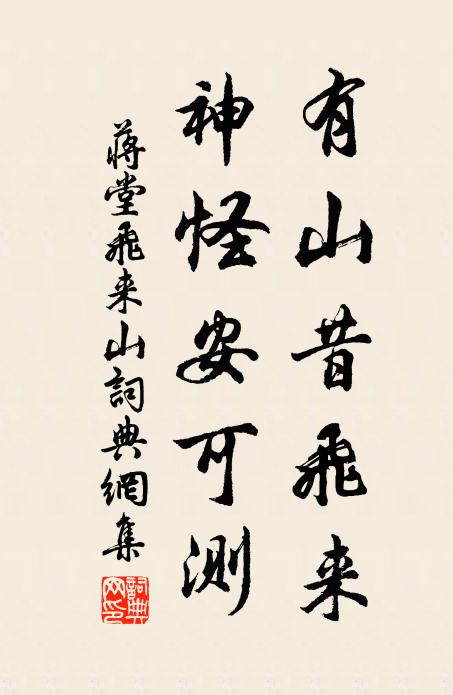 有山昔飛来
神怪安可測
蔣堂飛来山詞典網集
詞典網印